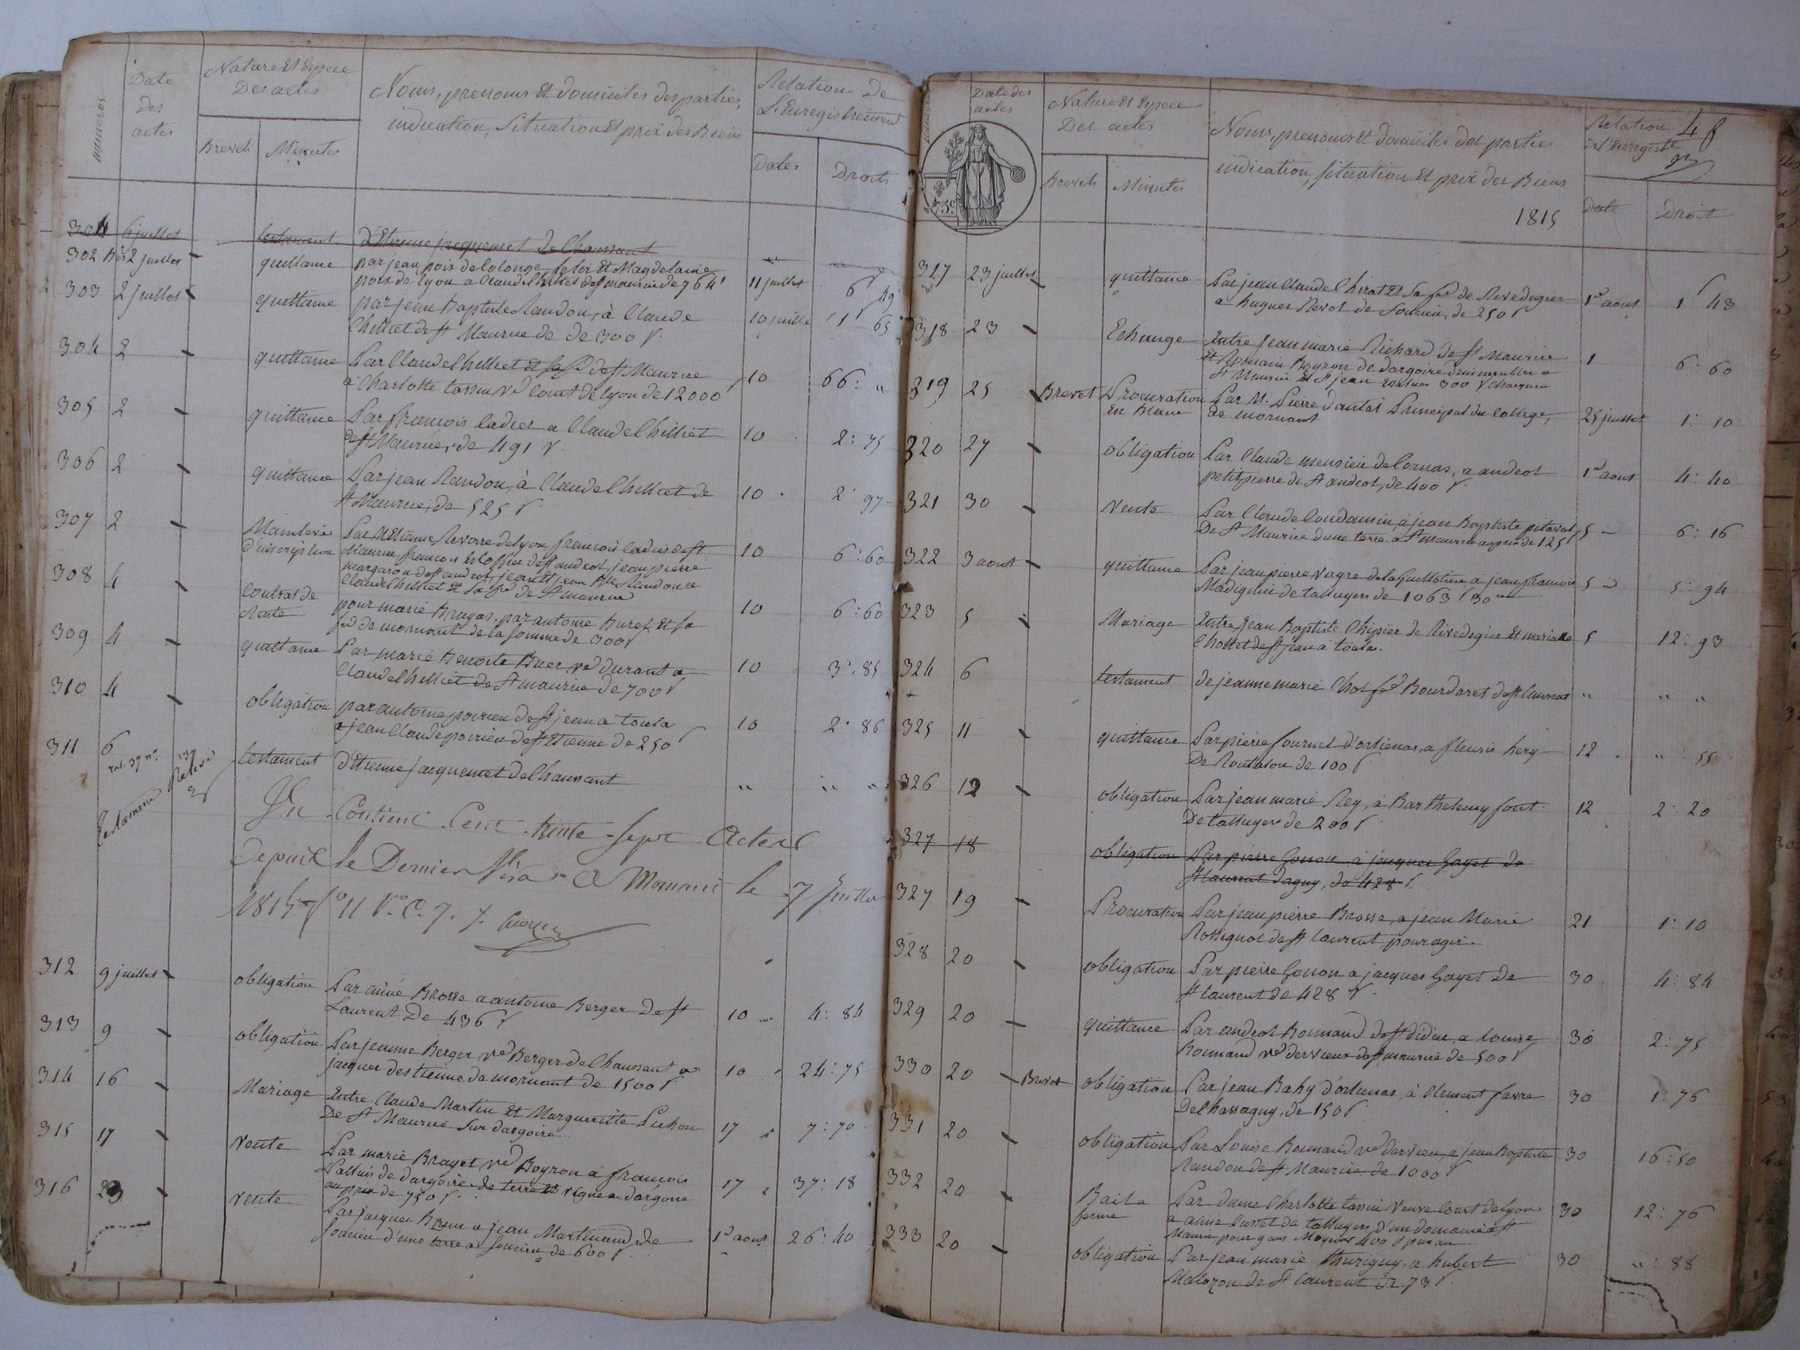 numeros
Date
des
actes
Nature et Espece
Des actes
Brevets Minutes
Noms, prenoms et domiciles des parties,
indication, Situation et prix des Biens
Relation De
L'Enregistrement
Dates Droits
301 6 juillet testament d'Etienne jacquemet de Chaussant
302 2 juillet quittance par jean pois de et Magdelaine
pois de lyon a Claude de St maurice de 764 f 11 juillet 6 49
303 2 juillet quittance par jean Baptiste Randon, à Claude
Chilliet de St Maurice de de 300 f. 10 juillet 1 65
304 2 quittance Par Claude Chilliet et sa fe de St Maurice
a Charlotte tassin Ve Court de lyon de 12000 f 10 66 : "
305 2 quittance Par françois ladret a Claude Chilliet
de St Maurice, de 491 f. 10 2 : 75
306 2 quittance Par jean Randon, à Claude Chilliet de
St Maurice, de 525 f. 10 2 : 97
307 2 Mainlevée
d'inscription Par Etienne de lyon françois de St
Maurice, françois de St andeol, jean pierre
margaron de St andeol, jean et jean Bte Randon a
Claude Chilliet et sa fe de St maurice 10 6 : 60
308 4 Contrat de
Rente pour marie Brayas, par antoine Buret et sa
fe de mornant de la somme de 300 f 10 6 : 60
309 4 quittance Par marie Benoite Buer ve durant a
Claude Chilliet de St maurice de 700 f 10 3 : 85
310 4 obligation par antoine poivrieu de St jean a toula
a jean Claude poivrieu de St Etienne de 250 f 10 2 : 86
311 6 testament d'Etienne jacquemet de Chaussant " " "
testament
Vu Contient Cent trente-sept actes
depuis le Dernier Visa a Mornant le 7 juillet
1815
312 9 juillet obligation Par aimé Brosse a antoine Berger de St
Laurent De 436 f 10 4 : 84
313 9 obligation Par jeanne Berger ve Berger de Chaussant a
jacques destienne de mornant de 1500 f 10 24 : 75
314 16 Mariage Entre Claude Martin et Marguerite Pichon
De St Maurice Sur dargoire 17 7 : 70
315 17 Vente Par marie Brayet ve Boyron à françois
Palluis de dargoire de terre et vigne a dargoire
au prix de 750 f. 17 37 : 18
316 23 Vente Par jacques Brun a jean Martinand de
Soucieu d'une terre a Soucieu de 600 f 1er aout 26 : 40
Date des
actes
Nature et Espece
Des actes
Brevets Minutes
Noms, prenoms et domiciles des parties
indication, Situation et prix des Biens
1815
Relation
de l'Enregistt
Date Droit
48
317 23 juillet quittance Par jean Claude Chirat et Sa fe de Riverie
a hugues Revol de Soucieu, de 250 f 1er aout 1 43
318 23 Echange Entre jean marie Richard de St Maurice
et Romain Boyron de dargoire d'immeubles a
St Maurice et St jean valeur 300 f chacun 1 6 : 60
319 25 Brevet Procuration
en Blanc Par M. Pierre dantas Principal du College,
de mornant 25 juillet 1 : 10
320 27 obligation Par Claude mensieu de Cornas, a andeol
petitpierre de St andeol, de 400 f. 1er aout 4 : 40
321 30 Vente Par Claude Coudamin, à jean Baptiste pitaval
De St Maurice d'une terre a St maurice au prix de 125 f 5 6 : 16
322 3 aout quittance Par jean pierre Vagre de la Guillotiere a jean françois
Madignier de taluyers de 1063 f 30 5 5 : 94
323 5 Mariage Entre jean Baptiste Chipier de Riverie et mariane
Chollet de St jean a toulas. 5 12 : 93
324 6 testament de jeanne marie Chol fe Bourdaret de St laurent " " "
325 11 quittance Par pierre fournet d'orlienas, a fleurie hery
De Rontalon de 100 f 12 " 55
326 12 obligation Par jean marie Rey, à Barthelemy font
De taluyers de 200 f. 12 2 : 20
327 18 obligation Par pierre Gonon à jacques Gayet de
St laurent dagny, de 428 f.
327 19 Procuration Par jean pierre Brosse, a jean Marie
Rossignol de St laurent pour agir. 21 1 : 10
328 20 obligation Par pierre Gonon a jacques Gayet de
St laurent de 428 f. 30 4 : 84
329 20 quittance Par andeol Bonnand de St didier a louise
Bonnand ve dervieux de St maurice de 500 f 30 2 : 75
330 20 Brevet obligation Par jean Bahy d'orlienas, à Clement favre
De Chassagny, de 150 f. 30 1 : 76
331 20 obligation Par Louise Bonnand ve dervieu, a jean Baptiste
Randon de St Maurice, de 1000 f 30 16 : 50
332 20 Bail a
ferme Par dame Charlotte tassin veuve Court de lyon
a aimé de taluyers d'un domaine a St
Maurice pour 9 ans Moyens 400 f par an 30 12 : 76
333 20 obligation Par jean marie thurigny a hubert
Malozon de St laurent de 73 f. 30 " : 88